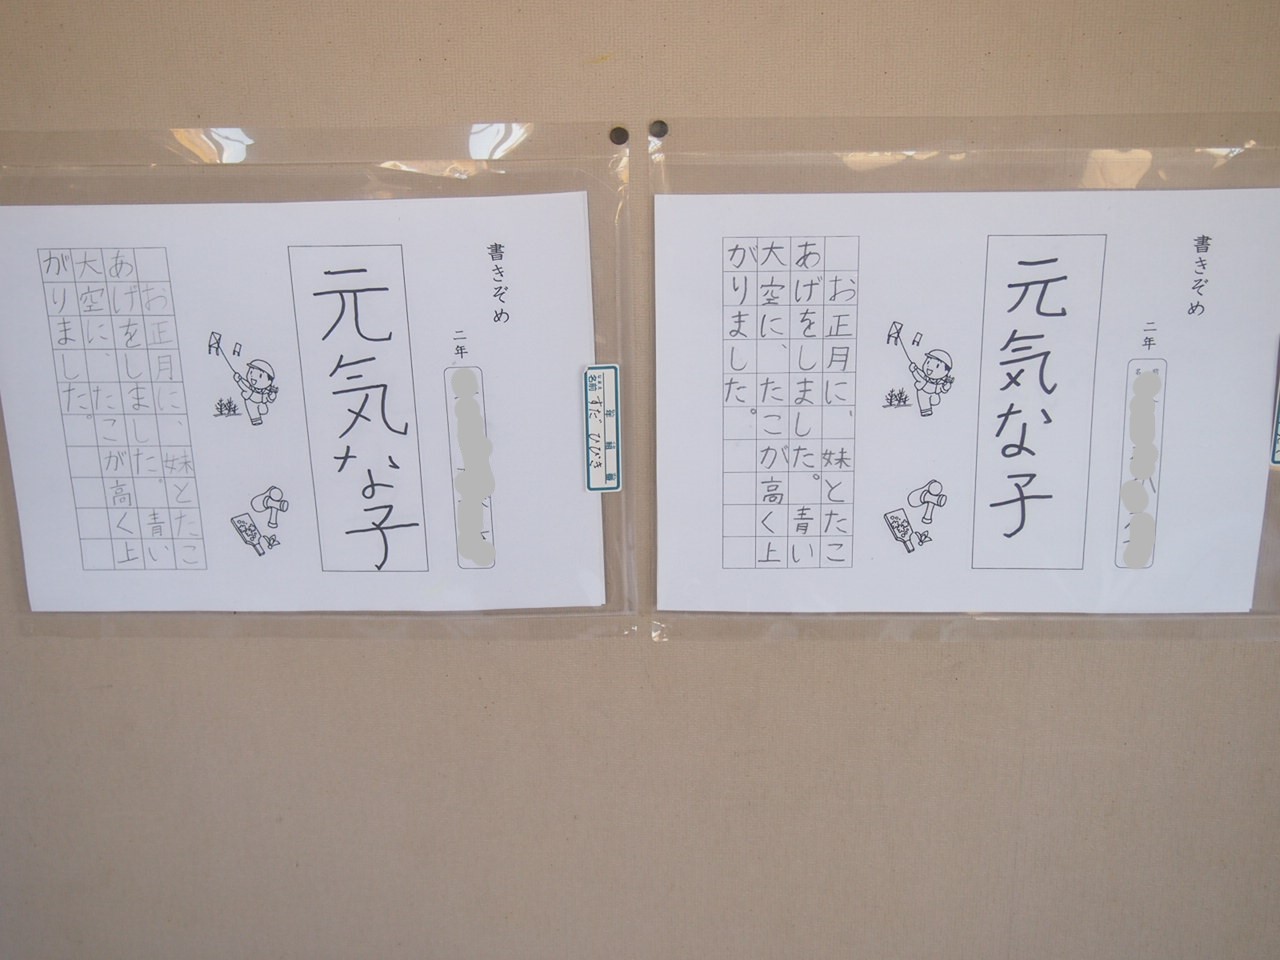 書きぞめ
二年
元気な子
お正月に、妹とたこ
あげをしました。青い
大空に、たこが高く上
がりました。
名前
すだ ひびき
書きぞめ
二年
元気な子
お正月に、妹とたこ
あげをしました。青い
大空に、たこが高く上
がりました。